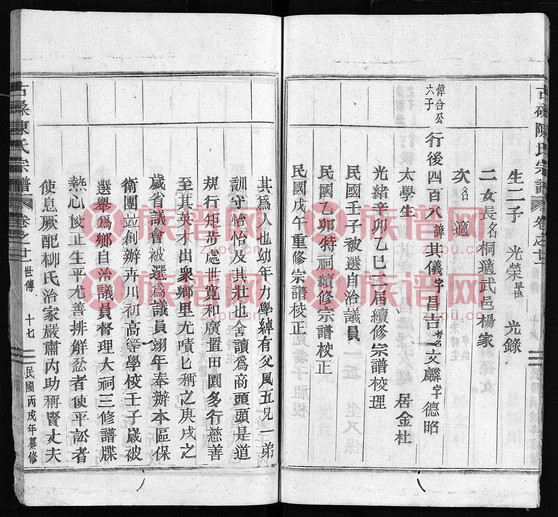 古磉陳氏宗譜
卷之廿
世傳
十六
生二子 光榮 光錄
二女長名桐適武邑楊家
次名適
偉台公六子
行後四百八諱其儀字昌吉考文麟字德昭
太學生 居金杜
光緒辛卯乙巳兩屆續修宗譜校理
民國壬子被選自治議員
民國乙卯特祠續修宗譜校正
民國戊午重修宗譜校正
其爲人也幼年力學綽有父風五兄一弟
訓守怡怡及其壯也舍讀爲商頭頭是道
規行矩步處世寬和廣置田園多行慈善
至其英才出衆鄉里尤嘖嘖稱之庚戌之
歲省議會被選爲議員翊年奉辦本區保
衛團並創辦卉川初高等學校壬子歲被
選舉爲鄉自治議員督理大祠三修譜牒
熱心校正生平尤善排解忿者使平訟者
使息厥配柳氏治家嚴肅內助稱賢丈夫
古磉陳氏宗譜
卷之廿
世傳
十七
民國丙戌年纂修
族谱网